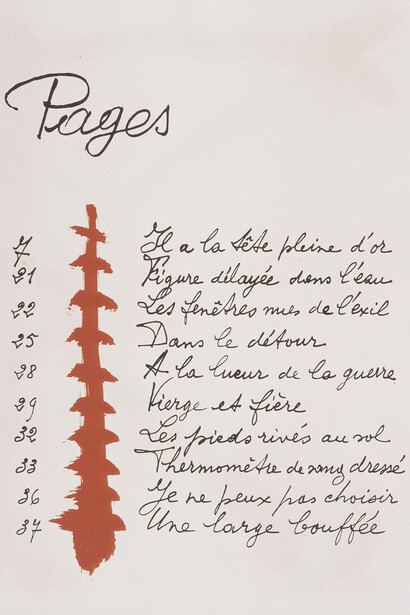 Pages
7 Il a la tête pleine d'or
21 Figure délayée dans l'eau
22 Les fenêtres nues de l'exil
25 Dans le détour
28 A la lueur de la guerre
29 Vierge et fière
32 Les pieds rivés au sol
33 Thermomètre de sang dressé
36 Je ne peux pas choisir
37 Une large bouffée